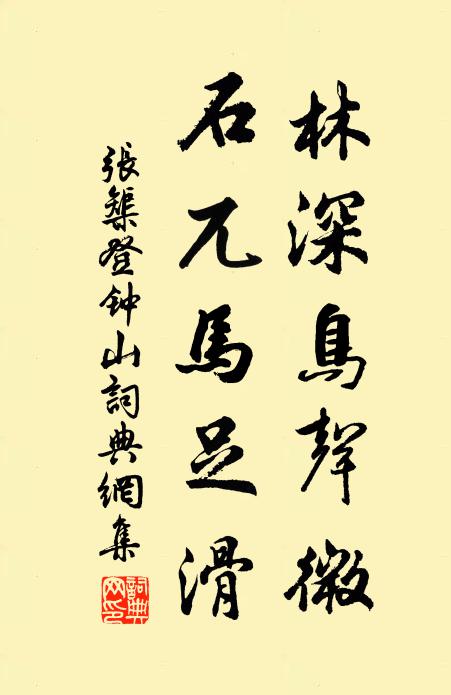 林深鳥聲微
石兀馬足滑
張榘登钟山詞典網集
詞典网印